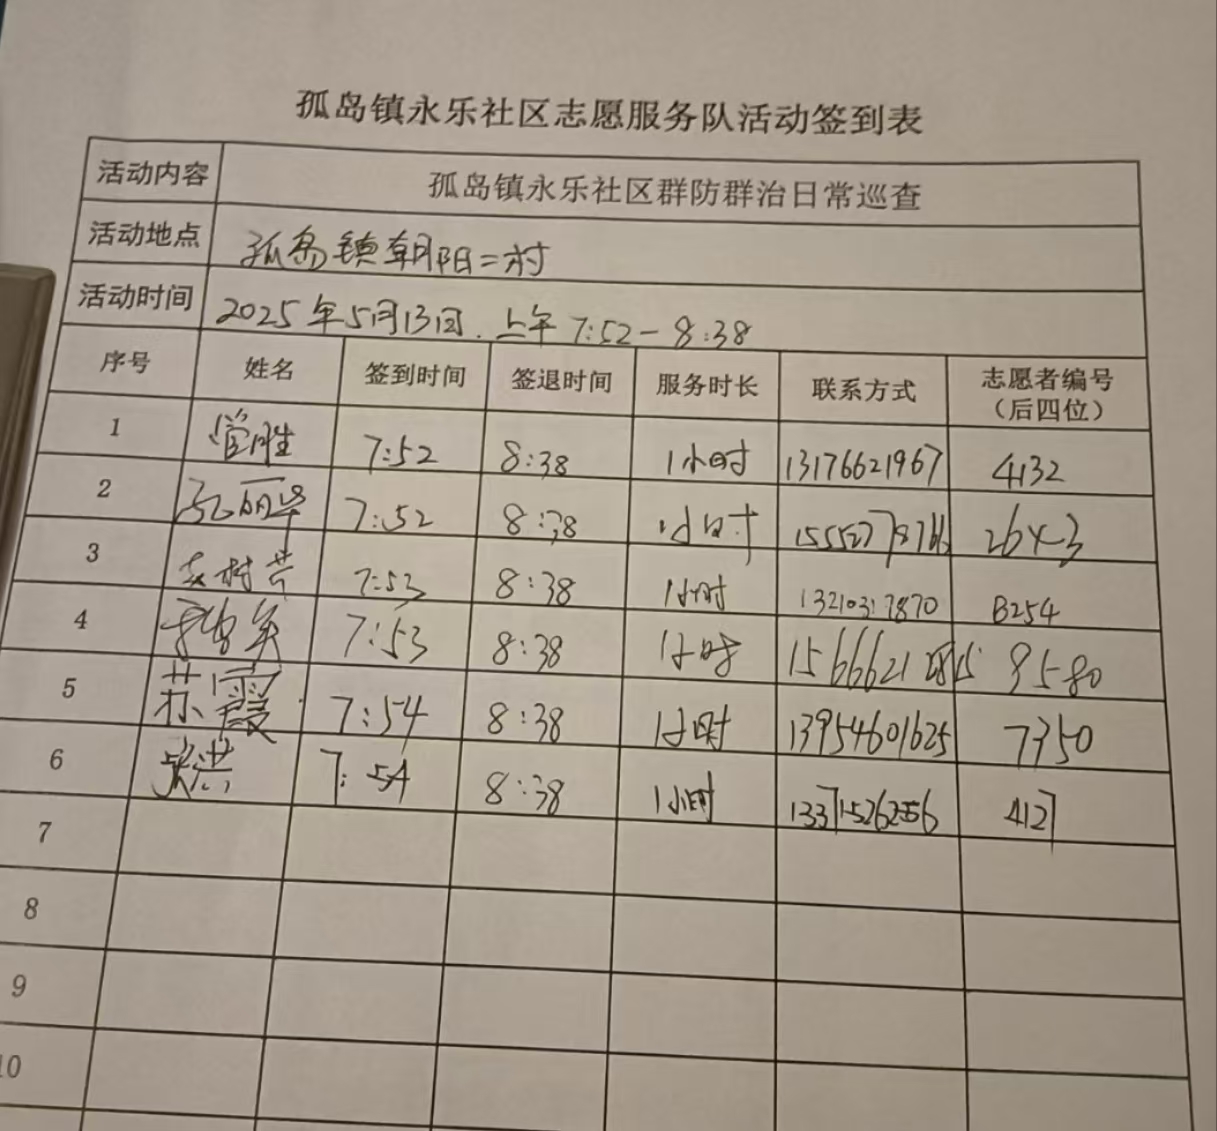 孤岛镇永乐社区志愿服务队活动签到表
活动内容 孤岛镇永乐社区群防群治日常巡查
活动地点 孤岛镇朝阳二村
活动时间 2025年5月13日.上午7:52-8:38
序号 姓名 签到时间 签退时间 服务时长 联系方式 志愿者编号（后四位）
1 7:52 8:38 1小时 13176621967 4132
2 7:52 8:38 1小时
3 7:53 8:38 1小时 13210317870 B254
4 7:53 8:38 1小时 9580
5 苏霞 7:54 8:38 1小时 13954601625 7350
6 张洪 7:54 8:38 1小时 13371526256 4127
7
8
9
10